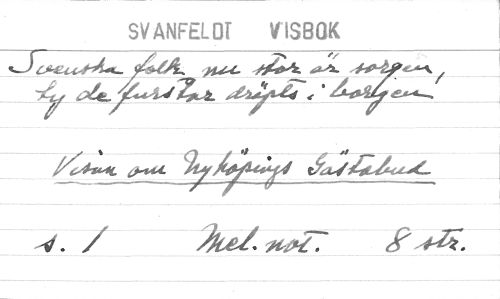 SVANFELDT VISBOK
Svenska folk, nu stor är sorgen,
ty de furstar dräpts i borgen
Visan om Nyköpings Gästabud
s. 1 Mel. not. 8 str.